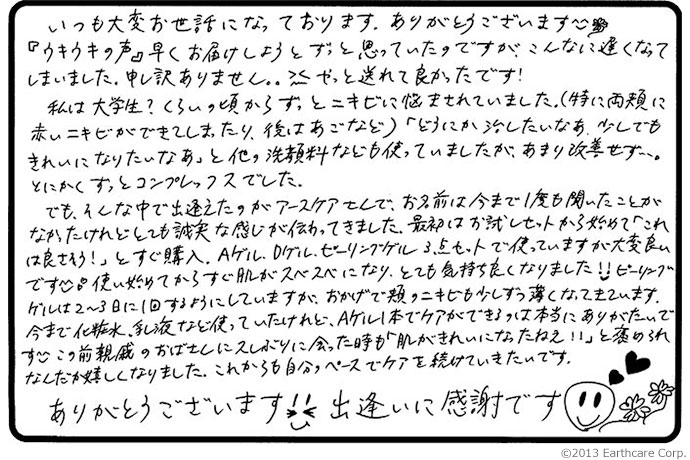 いつも大変お世話になっております。ありがとうございます
『ウキウキの声』早くお届けしようとずっと思っていたのですが、こんなに遅くなって
しまいました。申し訳ありません。。やっと送れて良かったです!
私は大学生?くらいの頃からずっとニキビに悩まされていました。(特に両頬に
赤いニキビができてしまったり、後はあごなど)「どうにか治したいなあ、少しでも
きれいになりたいなあ」と他の洗顔料なども使っていましたが、あまり改善せず…。
とにかくずっとコンプレックスでした。
でも、そんな中で出逢えたのがアースケアせんで、お名前は今まで1度も聞いたことが
なかったけれどとても誠実な感じが伝わってきました。最初はお試しセットから始めて「これ
は良さそう!」とすぐ購入。Aゲル、Dゲル、ピーリングゲル3点セットで使っていますが大変良い
です 使い始めてからすぐ肌がスベスベになり、とても気持ち良くなりました!!ピーリング
ゲルは2〜3日に1回するようにしていますが、おかげで頬のニキビも少しずつ薄くなってきています。
今まで化粧水、乳液など使っていたけれど、Aゲル1本でケアができるのは本当にありがたいで
す この前親戚のおばさんに久しぶりに会った時も「肌がきれいになったねえ!!」と褒められ
なんだか嬉しくなりました。これからも自分のペースでケアを続けていきたいです。
ありがとうございます!! 出逢いに感謝です
©2013 Earthcare Corp.